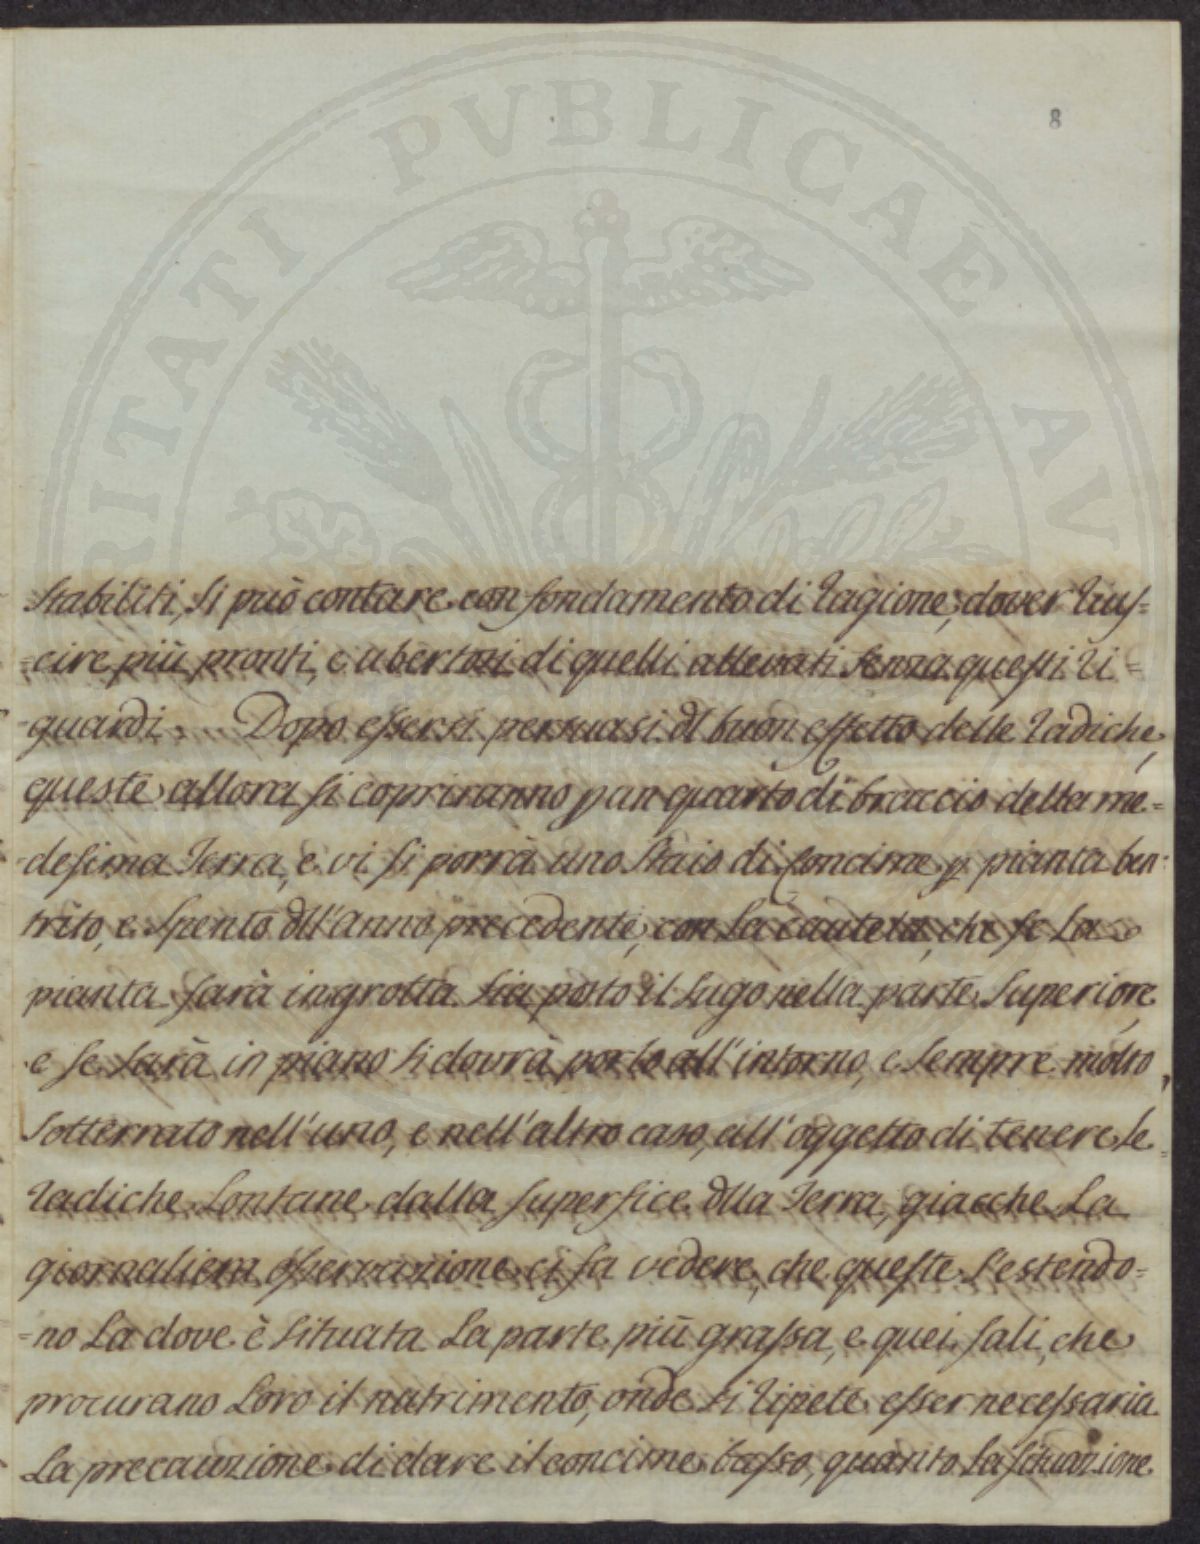 PVBLICAE
RITATI
AV
8
stabiliti, si può contare con fondamento di ragione, dover rius=
=cire più pronti, e ubertosi di quelli allevati senza questi ri=
=guardi. Dopo essersi persuasi dl buon effetto delle radiche,
queste allora si copriranno p un quarto di braccio della me=
=desima Terra, e vi si porrà uno staio di concime p pianta ben
trito, e spento dll'anno precedente, con la cautela, che se La
pianta sarà in grotta sia posto il sugo nella parte superiore,
e se sarà in piano si dovrà porlo all'intorno, e sempre molto
sotterrato nell'uno, e nell'altro caso, all'oggetto di tenere le
radiche Lontane dalla superfice dlla Terra, giacche La
giornaliera osservazione ci fa vedere, che queste s'estendo=
=no La dove è situata La parte più grassa, e quei sali, che
procurano Loro il nutrimento, onde si ripete esser necessaria
La precauzione di dare il concime basso, quanto la situazione